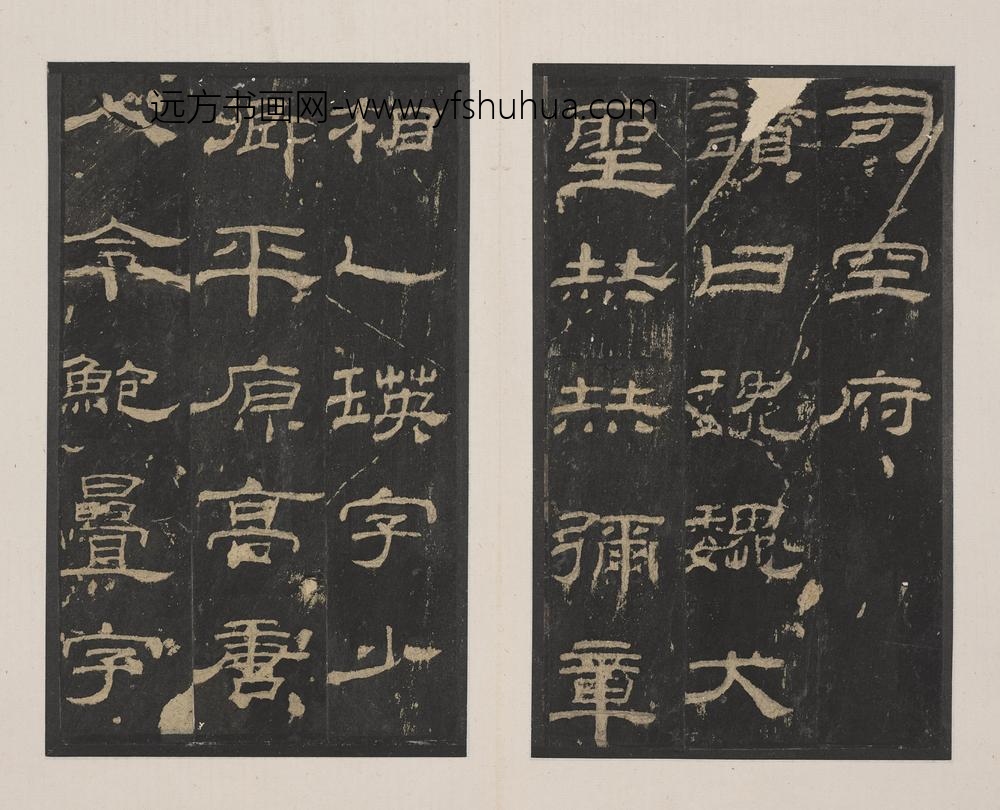 司空府
讚曰巍巍大
聖赫赫彌章
相乙瑛字少
卿平原高唐
人令鮑疊字
远方书画网-www.yfshuhua.com